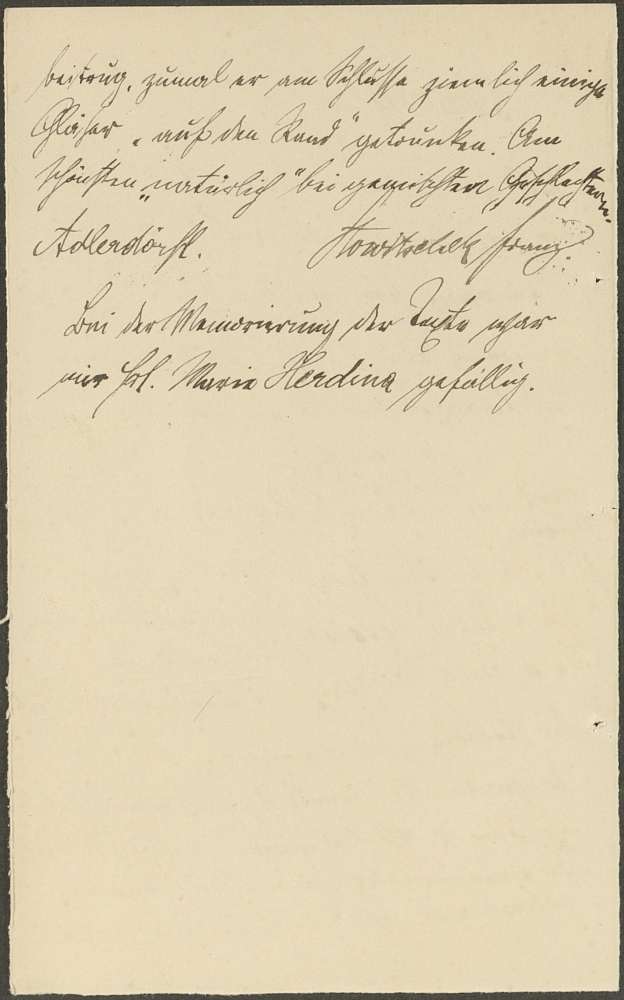 beitrug, zumal er am Schlusse ziemlich einige
Gläser „auf den Rand" getrunken. Am
schönsten „natürlich" bei gemischten Geschlechtern.
Adlerdörfl. Howitschek Franz.
Bei der Memorierung der Texte war
mir Frl. Marie Herdina gefällig.